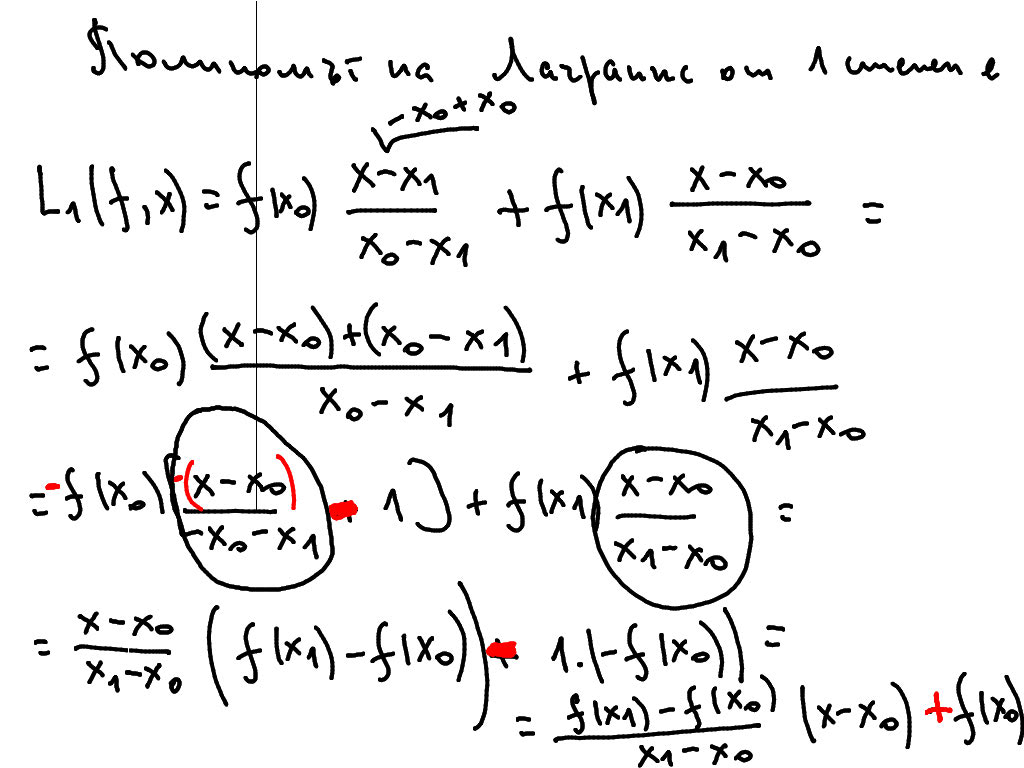 Полиномът на Лагранж от 1 степен
- x₀ + x₀
L₁(f, x) = f(x₀) (x - x₁)/(x₀ - x₁) + f(x₁) (x - x₀)/(x₁ - x₀) =
= f(x₀) ((x - x₀) + (x₀ - x₁))/(x₀ - x₁) + f(x₁) (x - x₀)/(x₁ - x₀)
= -f(x₀) [-(x - x₀)/(-x₀ - x₁) - 1] + f(x₁) (x - x₀)/(x₁ - x₀) =
= (x - x₀)/(x₁ - x₀) (f(x₁) - f(x₀)) - 1.(-f(x₀)) =
= (f(x₁) - f(x₀))/(x₁ - x₀) (x - x₀) + f(x₀)